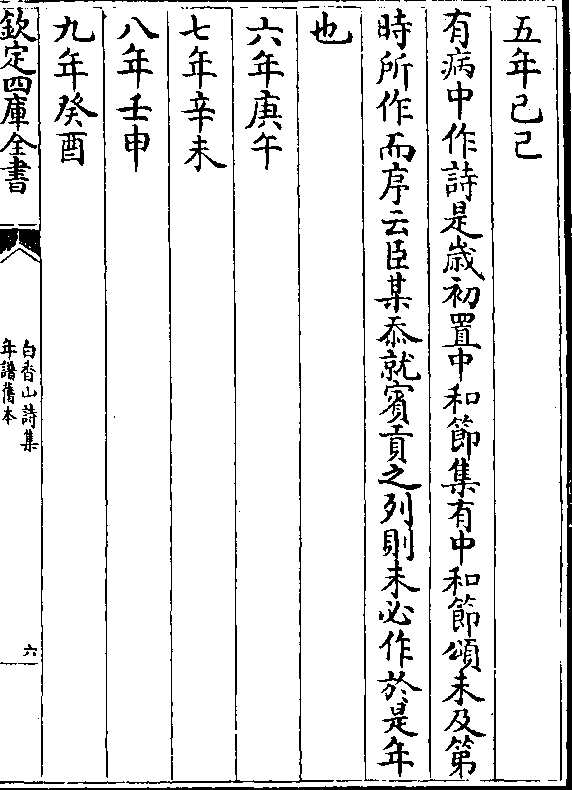 五年己已
有病中作詩是歲初置中和節集有中和節頌未及第
時所作而序云臣某忝就賓貢之列則未必作於是年
也
六年庚午
七年辛未
八年壬申
九年癸酉
欽定四庫全書
白香山詩集
年譜舊本
六